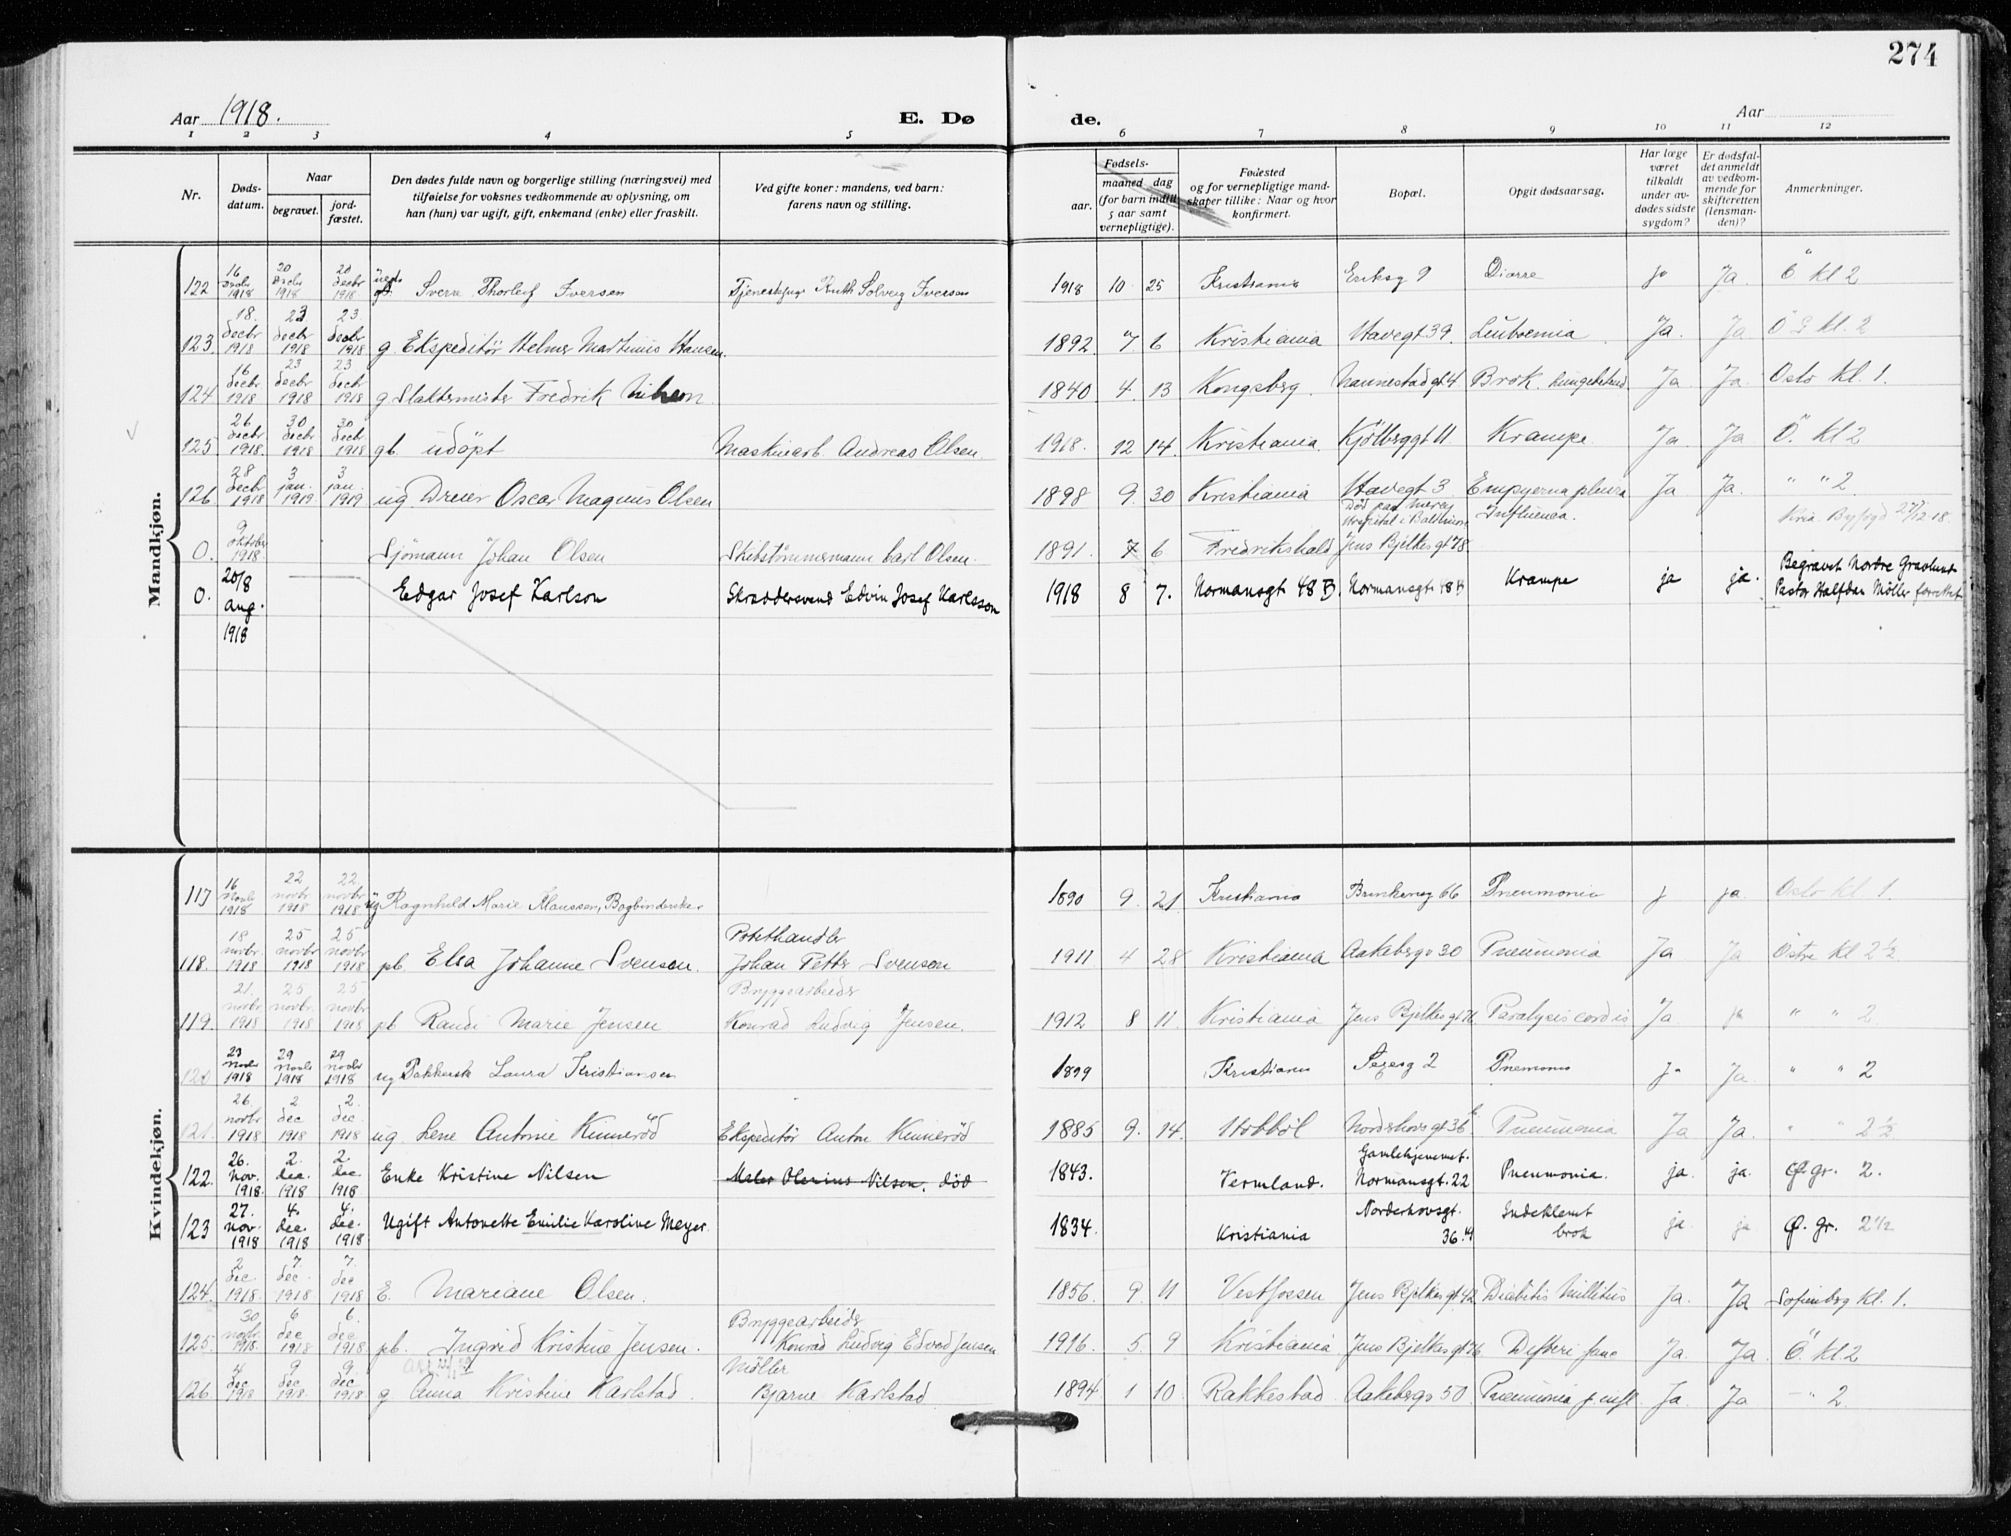 274
Aar 1918. E. Dø de. Aar
1 2 3 4 5 6 7 8 9 10 11 12
Nr. Døds-datum. Naar begravet. jord-fæstet. Den dødes fulde navn og borgerlige stilling (næringsvei) med tilføielse for voksnes vedkommende av oplysning, om han (hun) var ugift, gift, enkemand (enke) eller fraskilt. Ved gifte koner: mandens, ved barn: farens navn og stilling. Fødsels- aar. maaned dag (for barn indtil 5 aar samt vernepligtige). Fødested og for vernepligtige mand-skaper tillike: Naar og hvor konfirmert. Bopæl. Opgit dødsaarsag. Har læge været tilkaldt under av-dødes sidste sygdom? Er dødsfal-det anmeldt av vedkom-mende for skifteretten (lensman-den)? Anmerkninger.
Mandkjøn.
122 16 Decbr 1918 20 Decbr 1918 20 decbr 1918 Sverre Thorleif Iversen Ruth Solveig Iversen 1918 10 25 Kristiania Eriksg 9 Diarre Ja Ö kl 2
123. 18. decbr 1918 23 decbr 1918 23. decbr 1918 g Ekspeditör Helmer Martinius Hansen. 1892. 7 6 Kristiania Havegt 39. Ja. Ja kl. 2
124 16 decbr. 1918 23 decbr 1918 23 decbr 1918 g Slaktermester Fredrik 1840 4. 13 Kongsberg. Nannestadgt 4 Brok Ja Ja. Oslo kl. 1.
125 26 decbr 1918. 30 decbr 1918 30 decbr 1918 gb. udöpt Maskinarb Andreas Olsen. 1918. 12 14. Kristiania. Kjölberggt 11 Krampe Ja Ja. Ö. kl 2
126 28 decbr 1918 3 jan. 1919 3 jan. 1919 ug. Dreier Oscar Magnus Olsen 1898 9. 30 Kristiania Havegt 3. Empyema pleura Influenca. Ja Ja. " " 2
0. 9 oktober 1918. Sjömann Johan Olsen Skibstömmermann Carl Olsen. 1891. 7 6 Fredrikshald Död paa Mercy Hospital i Baltimore. Jens Bjelkes gt 78 Kria. Byfogd 27/12-18.
0. 20/8 aug. 1918 Edgar Josef Karlson Skræddersvend Edvin Josef Karlsson 1918 8 7. Normansgt 48 B. Normansgt. 48 B Krampe ja ja. Begravet Nordre Gravlund Pastor Halfdan Möller forrettet
Kvindekjøn.
117 16 Novbr 1918 22 novbr 1918 22. novbr 1918 ug Ragnhild Marie Klaussen, Bogbinderske 1890 9. 21. Kristiania 66 Pneumonie J ja. Oslo kl. 1.
118. 18 novbr 1918 25 novbr 1918 25 novbr 1918 pb. Elsa Johanne Svensen. Potethandler Johan Petter Svensen 1911 4 28 Kristiania Aakebergv 30 Pneumonia Ja Ja Östre kl 2 1/2
119. 21. novbr 1918 25 novbr. 1918 25 novbr 1918 pb Randi Marie Jensen Bryggearbeider Konrad Ludvig Jensen. 1912 8 11. Kristiania Jens Bjelkes gt 76 Paralysis cordis Ja ja " " 2.
120 23 Novbr 1918 29 Novbr 1918 29 novbr 1918 ug Pakkerske Laura Kristiansen 1899 Kristiania 2 Pnemoni Ja Ja. " " 2
121. 26. novbr 1918 2 dec 1918 2. dec. 1918 ug. Lene Antonie Kinneröd Ekspeditör Anton Kinneröd 1885 9. 14. Hobböl Nordshovsgt 36 b Pneumonia Ja Ja. " " 2 1/2
122. 26. Nov. 1918. 2. dec. 1918 2. dec. 1918 Enke Kristine Nilsen Maler Olenius Nilsen. död 1843. Vermland. Gamlehjemmet. Normansgt. 22 Pneumonia. ja. ja. Ø gr. 2.
123 27. nov. 1918 4. dec. 1918 4. dec. 1918 Ugift Antonette Emilie Karoline Meyer. 1834. Kristiania Norderhovsgt. 36. Indeklemt brok ja ja Ø. gr. 2 1/2
124. 2 dec. 1918. 7. dec. 1918 7. dec 1918 E. Mariane Olsen. 1856. 9 11 Vestfossen Jens Bjelkes gt 42 Diabetis Millitus Ja. Ja Sofienberg kl. 1.
125. 30 novbr 1918. 6 dec 1918 6. dec. 1918 pb. Ingrid Kristine Jensen. Bryggearbeider Konrad Ludvig Edvard Jensen 1916. 5. 9 Kristiania Jens Bjelkes gt 76 Difteri Ja. Ja. Ö. kl 2
126. 4 dec 1918 9 dec 1918. 9. dec 1918. g Anna Kristine Karlstad. Möller Bjarne Karlstad. 1894 1 10. Rakkestad. Aakebergv 50. Pneumonia f. infl. Ja. Ja " 2.